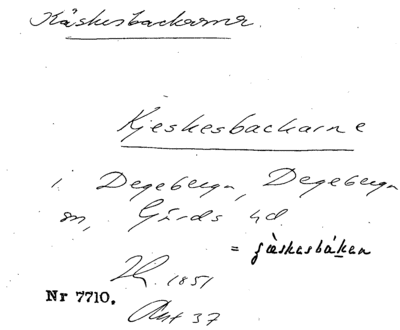 Käskesbackarna.
Kjeskesbackarne
i Degeberga, Degeberga
sn, Gärds hd.
= ʃæ̀skesbáken
1851
Nr 7710.
37